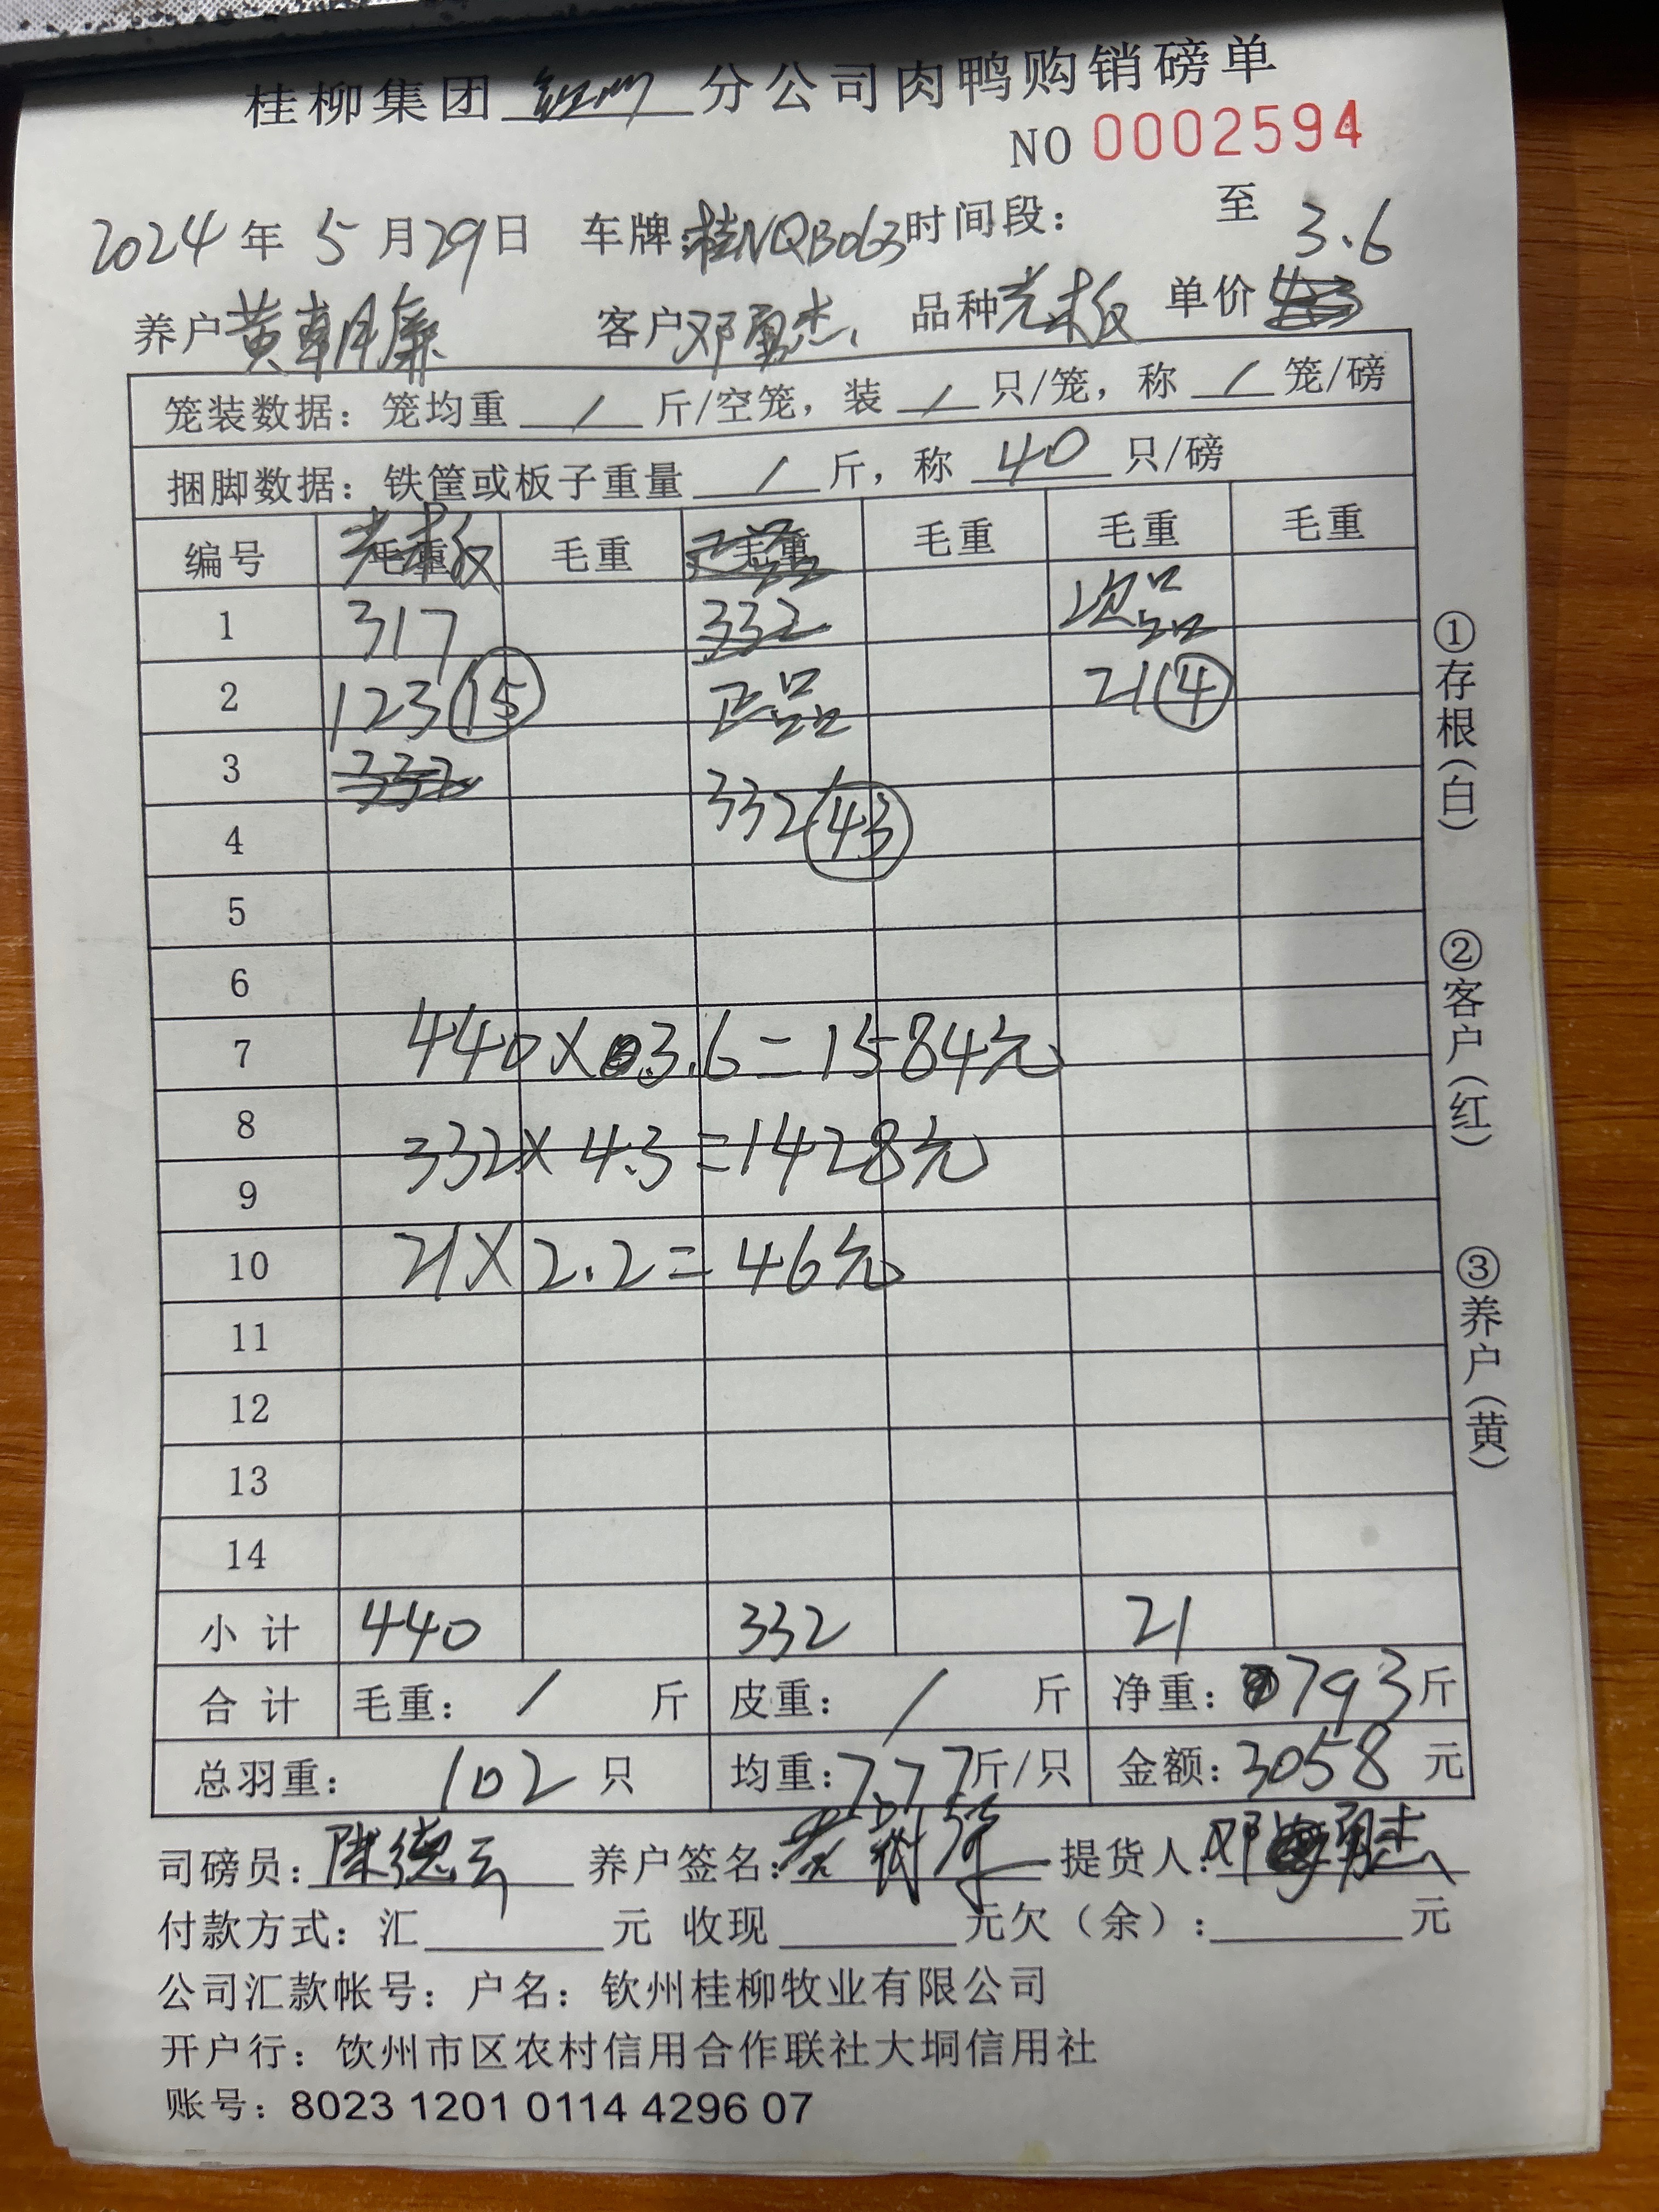 桂柳集团 钦州 分公司肉鸭购销磅单
NO 0002594
2024年 5月29日 车牌:桂NQB063 时间段: 至
3.6
养户 黄朝廉 客户 邓勇杰 品种 光板 单价
笼装数据:笼均重 / 斤/空笼,装 / 只/笼,称 / 笼/磅
捆脚数据:铁筐或板子重量 / 斤,称 40 只/磅
编号 光板 毛重 毛重 毛重 毛重 毛重 毛重
1 317 332 次品
2 123 15 正品 21 4
3 332
4 332 43
5
6
7 440×3.6=1584元
8 332×4.3=1428元
9
10 21×2.2=46元
11
12
13
14
小计 440 332 21
合计 毛重: / 斤 皮重: / 斤 净重: 793斤
总羽重: 102 只 均重:7.77斤/只 金额:3058 元
司磅员:陈德云 养户签名: 提货人:邓勇杰
付款方式:汇 元 收现 元欠(余): 元
公司汇款帐号:户名:钦州桂柳牧业有限公司
开户行:钦州市区农村信用合作联社大垌信用社
账号:8023 1201 0114 4296 07
①存根(白)
②客户(红)
③养户(黄)